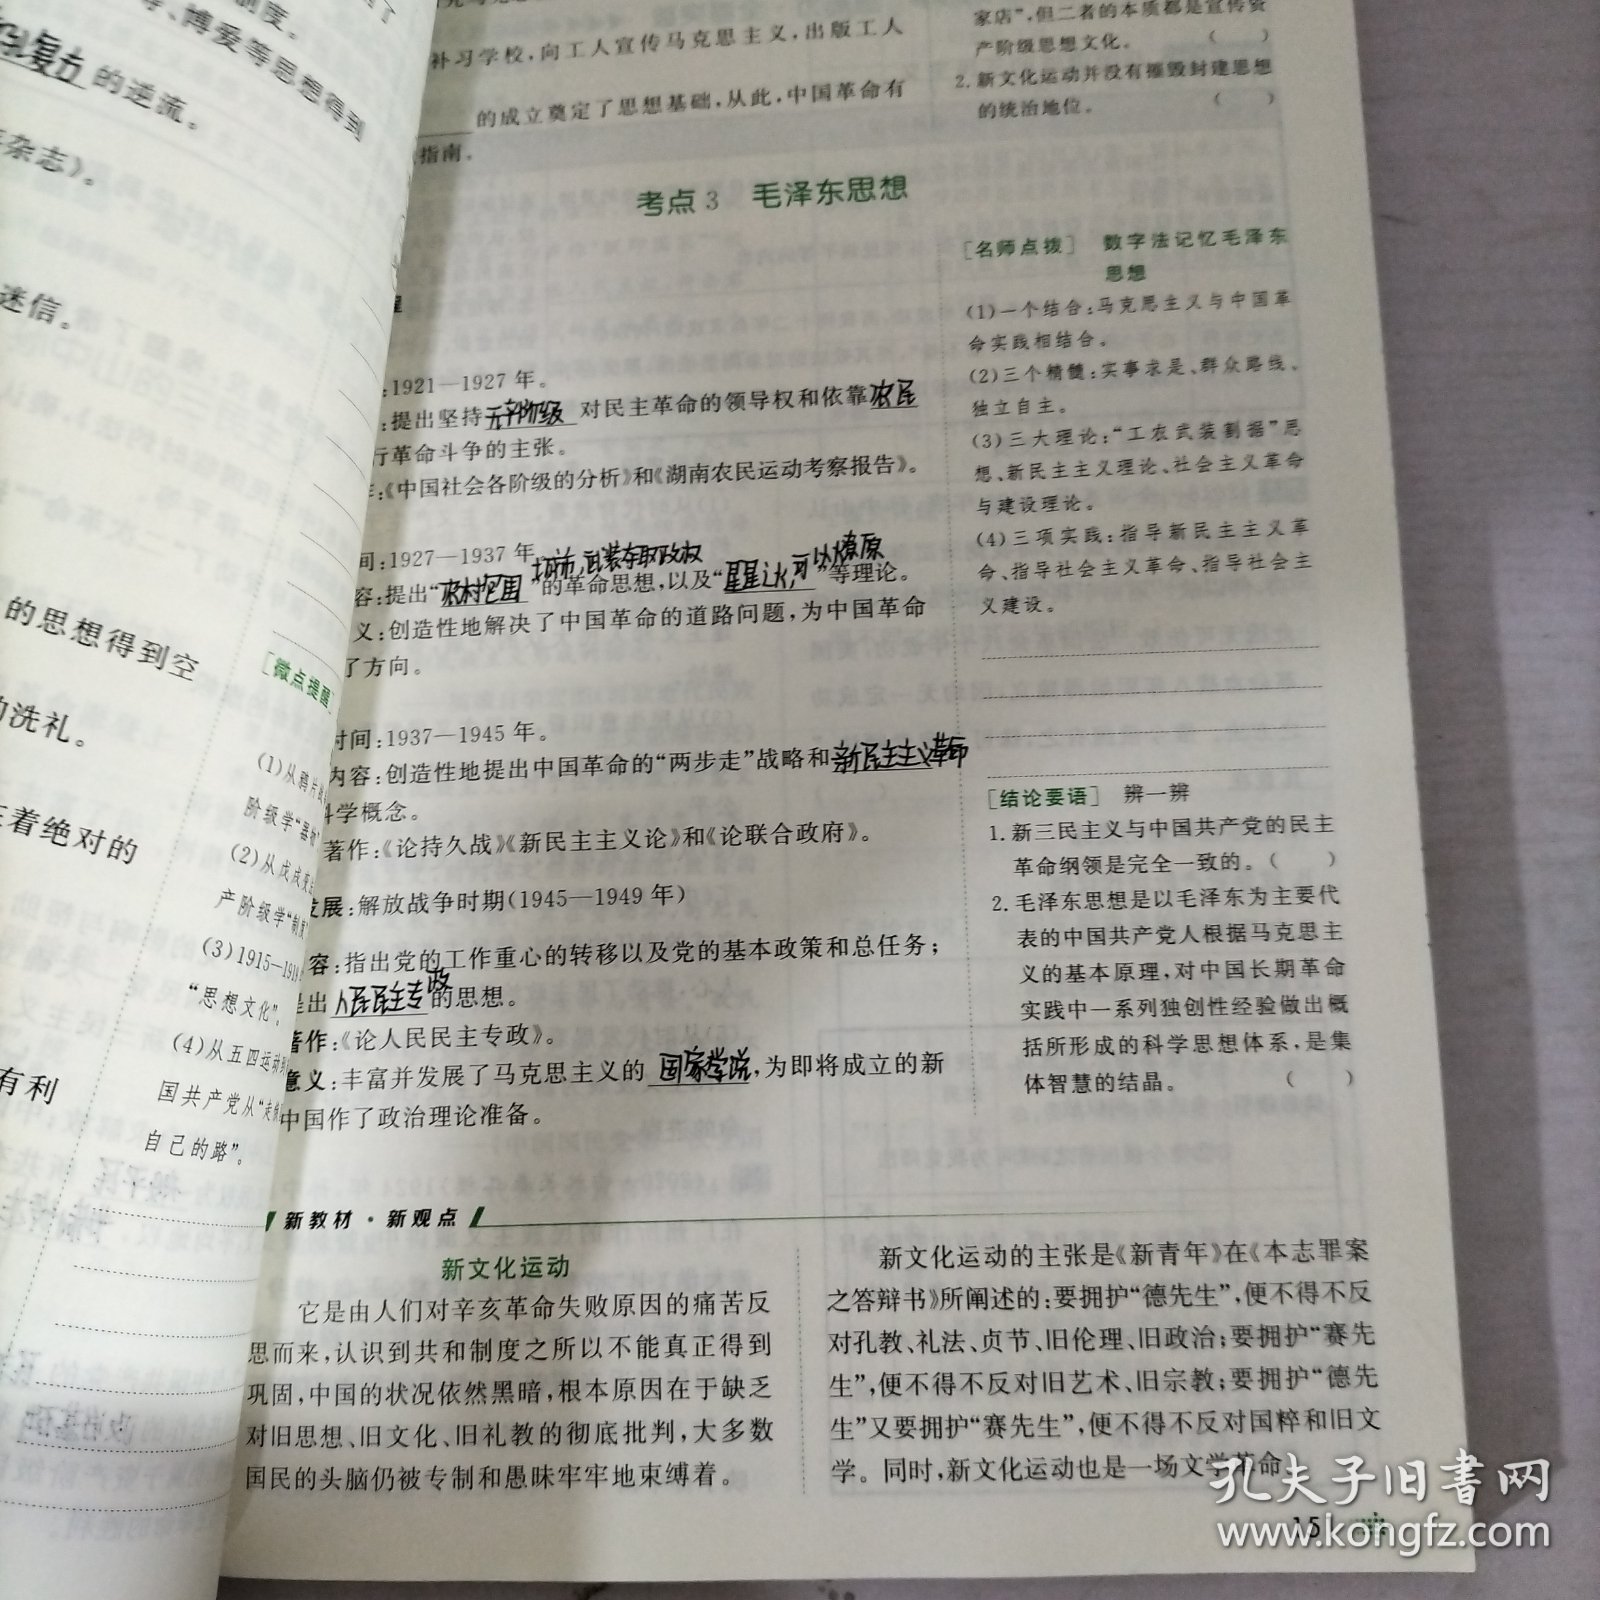 制度。
等、博爱等思想得到
孔复古的逆流。
杂志》。
迷信。
的思想得到空
的洗礼。
着绝对的
有利
[微点提醒]
(1)从鸦片
阶级学“器物
(2)从戊戌变
产阶级学“制度
(3)1915—191
“思想文化”。
(4)从五四运动
国共产党从“走
自己的路”。
政治基础
补习学校,向工人宣传马克思主义,出版工人
的成立奠定了思想基础,从此,中国革命有
指南。
考点3 毛泽东思想
:1921—1927年。
:提出坚持无产阶级对民主革命的领导权和依靠农民
行革命斗争的主张。
:《中国社会各阶级的分析》和《湖南农民运动考察报告》。
间:1927—1937年。
城市,武装夺取政权
可以燎原
容:提出“农村包围”的革命思想,以及“星星之火,”等理论。
义:创造性地解决了中国革命的道路问题,为中国革命
了方向。
时间:1937—1945年。
内容:创造性地提出中国革命的“两步走”战略和新民主主义革命
科学概念。
著作:《论持久战》《新民主主义论》和《论联合政府》。
发展:解放战争时期(1945—1949年)
容:指出党的工作重心的转移以及党的基本政策和总任务;
提出人民民主专政的思想。
著作:《论人民民主专政》。
意义:丰富并发展了马克思主义的国家学说,为即将成立的新
中国作了政治理论准备。
家店”,但二者的本质都是宣传资
产阶级思想文化。 ( )
2. 新文化运动并没有摧毁封建思想
的统治地位。 ( )
[名师点拨] 数字法记忆毛泽东
思想
(1)一个结合:马克思主义与中国革
命实践相结合。
(2)三个精髓:实事求是、群众路线、
独立自主。
(3)三大理论:“工农武装割据”思
想、新民主主义理论、社会主义革命
与建设理论。
(4)三项实践:指导新民主主义革
命、指导社会主义革命、指导社会主
义建设。
[结论要语] 辨一辨
1. 新三民主义与中国共产党的民主
革命纲领是完全一致的。( )
2. 毛泽东思想是以毛泽东为主要代
表的中国共产党人根据马克思主
义的基本原理,对中国长期革命
实践中一系列独创性经验做出概
括所形成的科学思想体系,是集
体智慧的结晶。 ( )
新教材·新观点
新文化运动
它是由人们对辛亥革命失败原因的痛苦反
思而来,认识到共和制度之所以不能真正得到
巩固,中国的状况依然黑暗,根本原因在于缺乏
对旧思想、旧文化、旧礼教的彻底批判,大多数
国民的头脑仍被专制和愚昧牢牢地束缚着。
新文化运动的主张是《新青年》在《本志罪案
之答辩书》所阐述的:要拥护“德先生”,便不得不反
对孔教、礼法、贞节、旧伦理、旧政治;要拥护“赛先
生”,便不得不反对旧艺术、旧宗教;要拥护“德先
生”又要拥护“赛先生”,便不得不反对国粹和旧文
学。同时,新文化运动也是一场文学革命
15
孔夫子旧书网
www.kongfz.com